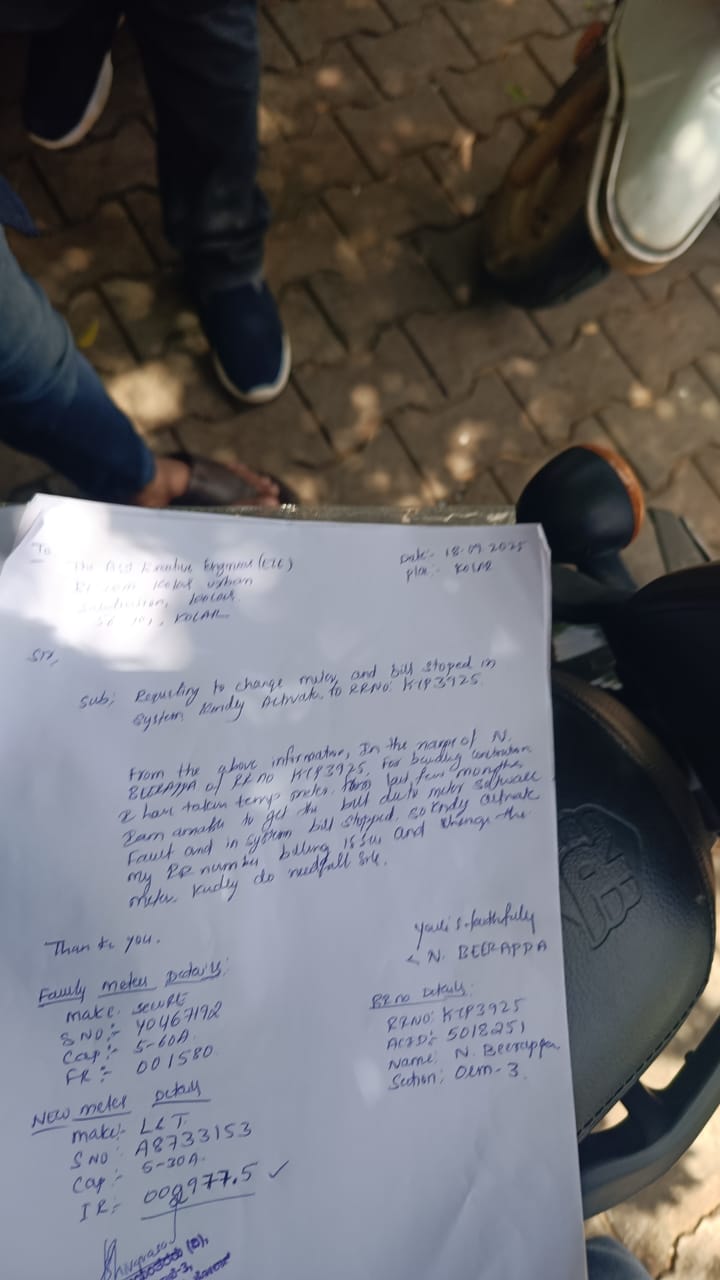 To
The Asst Executive Engineer (Ele)
Kolar urban
KOLAR
Date:- 18-09-2025
place:- KOLAR
Sir,
Sub: Requesting to change meter and bill stoped in
system Kindly Activate to RRNO: KTP3925
From the above information, In the name of N.
BEERAPPA of RR no KTP3925. For
I have taken temp meter. from last few months
I am unable to get the bill due to meter software
Fault and in system bill stopped. so kindly activate
my RR number billing issue and change the
meter. Kindly do needfull sir.
Thank you.
faithfully
N. BEERAPPA
Faulty meter Details:
make: SECURE
S NO:- Y0467192
Cap:- 5-60A
FR:- 001580
RR no Details:
RRNO: KTP3925
ACID: 5018251
Name: N. Beerappa
Section: O&M-3.
New meter Details
make:- L&T.
S NO: A8733153
Cap:- 5-30A.
IR:- 977.5 ✓